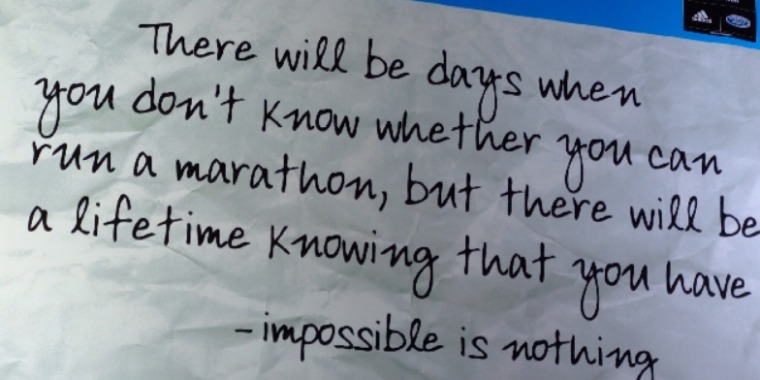 There will be days when
you don't know whether you can
run a marathon, but there will be
a lifetime knowing that you have
-impossible is nothing